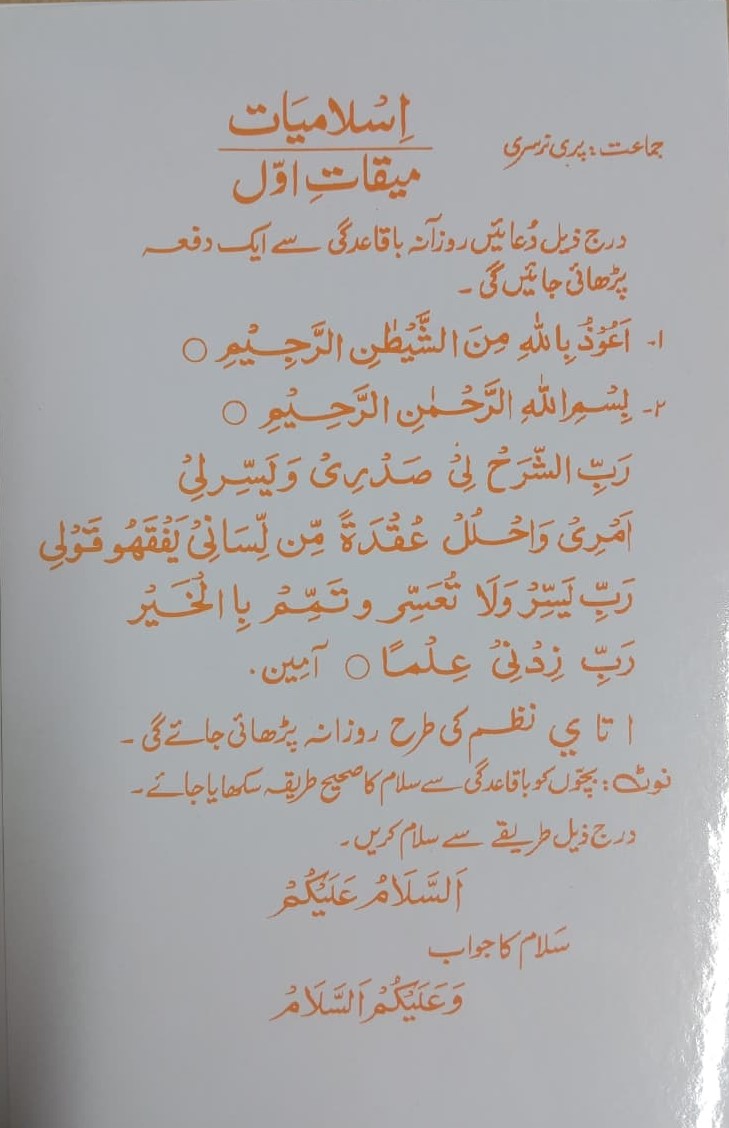 جماعت: پری نرسری
اِسْلامیَات
میقاتِ اوّل
درج ذیل دُعائیں روزآنہ باقاعدگی سے ایک دفعہ
پڑھائی جائیں گی۔
۱۔ اَعُوْذُ بِاللّٰهِ مِنَ الشَّیْطٰنِ الرَّجِیْمِ ○
۲۔ بِسْمِ اللّٰهِ الرَّحْمٰنِ الرَّحِیْمِ ○
رَبِّ الشَّرَحْ لِیْ صَدْرِیْ وَیَسِّرلِیْ
اَمْرِیْ وَاحْلُلْ عُقْدَةً مِّن لِّسَانِیْ یَفْقَهُو قَوْلِی
رَبِّ یَسِّرْ وَلَا تُعَسِّر وتَمِّمْ بِاالْخَیْر
رَبِّ زِدْنِیْ عِلْمًا ○ آمِین.
ا تا ي نظم کی طرح روزانہ پڑھائی جائے گی۔
نوٹ: بچّوں کو باقاعدگی سے سلام کا صحیح طریقہ سکھایا جائے۔
درج ذیل طریقے سے سلام کریں۔
اَلسَّلَامُ عَلَیْکُمْ
سَلام کا جواب
وَعَلَیْکُمْ اَلسَّلَامُ